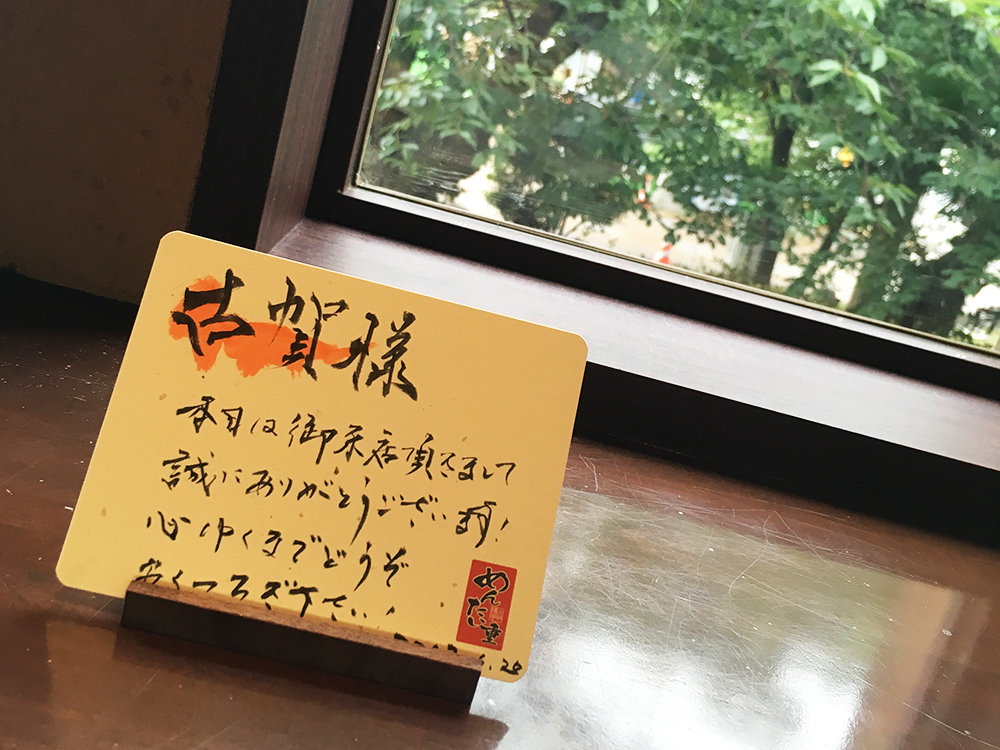 古賀様
本日は御来店頂きまして
誠にありがとうございます!
心ゆくまでどうぞ
おくつろぎ下さい!
めんたい重
.28